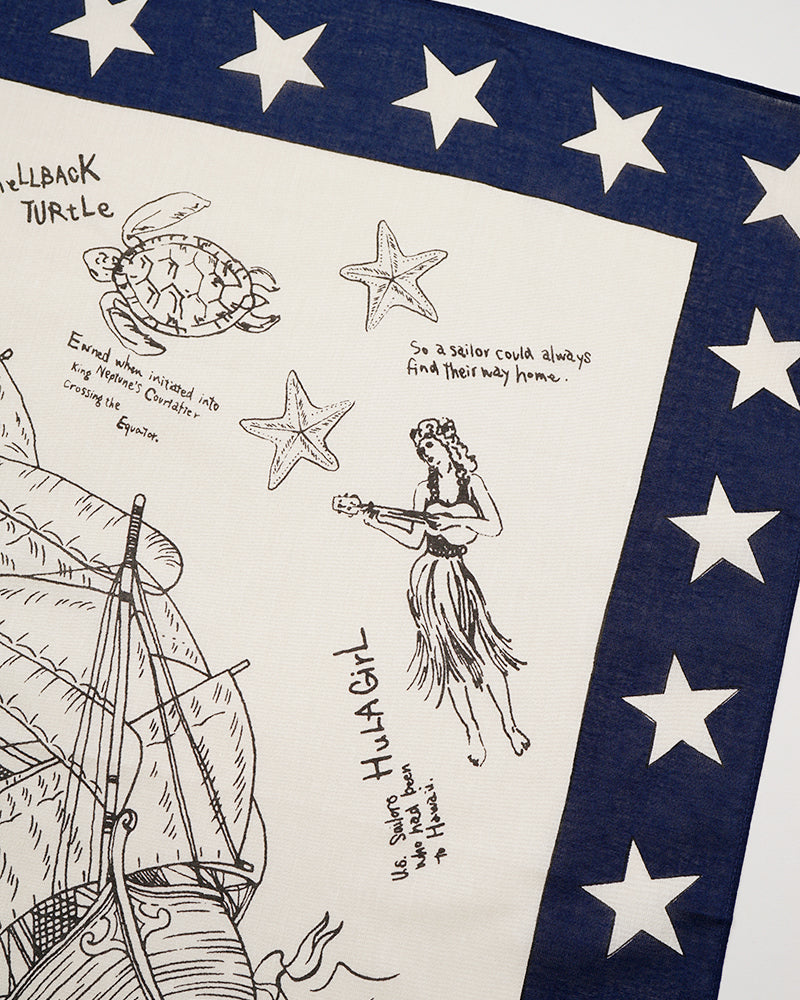 heLLBACK
TURtLe
Earned when initiated into
King Neptune's Courtafter
Crossing the
Equator.
So a sailor could always
find their way home.
HuLAGirL
U.S. Sailors
who had been
to Hawaii.